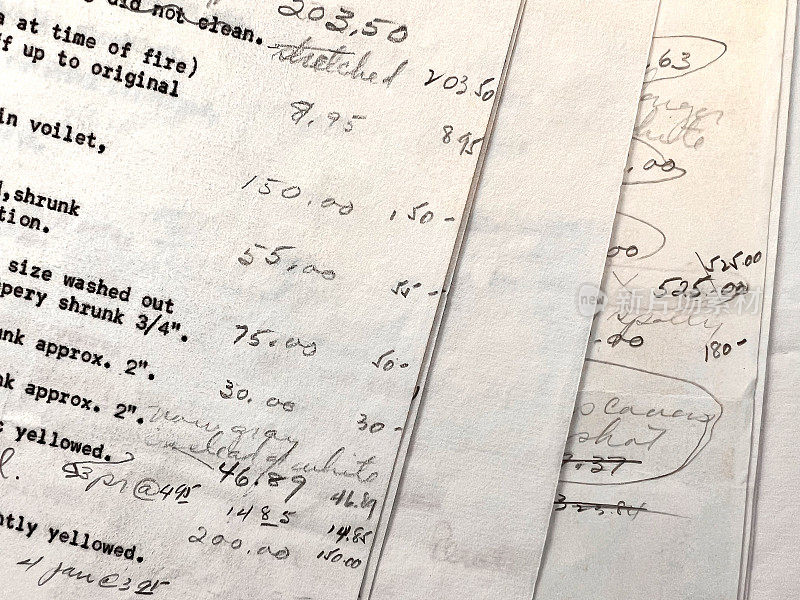 did not clean. 203.50
a at time of fire) stretched 203 50
ff up to original
8.95 8 95
in voilet,
150.00 150-
d,shrunk
tion.
55.00 55--
size washed out
pery shrunk 3/4".
75.00 50-
unk approx. 2".
30.00 30-
nk approx. 2".
now gray
instead of white
c yellowed.
46.89 46.89
3 pr @ 4 95
14 85 14.85
200.00 150.00
ntly yellowed.
4 @ 3 95
.63
white
.00
00
525.00
525.00
.00 180-
shot
7.37
new 新片场素材